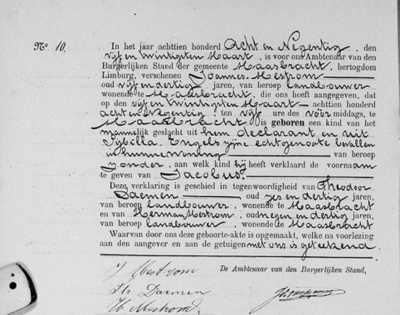 No. 10.
In het jaar achttien honderd Acht en Negentig, den
vijf en twintigsten Maart, is voor ons Ambtenaar van den
Burgerlijken Stand der gemeente Maasbracht, hertogdom
Limburg, verschenen Joannes Mestrom
oud vijf en dertig jaren, van beroep landbouwer
wonende te Maasbracht, die ons heeft aangegeven, dat
op den vijf en twintigsten Maart achttien honderd
acht en Negentig, ten vijf ure des voor middags, te
Maasbracht is geboren een kind van het
mannelijk geslacht uit hem declarant en uit
Sybella Engels zijne echtgenoote bevallen
in hunne woning van beroep
zonder, aan welk kind hij heeft verklaard de voornaam
te geven van Jacobus.
Deze verklaring is geschied in tegenwoordigheid van Theodoor
Daemen oud en dertig jaren,
van beroep landbouwer, wonende te Maasbracht
en van Herman Mestrom, oud negen en dertig jaren,
van beroep landbouwer, wonende te Maasbracht
Waarvan door ons deze geboorte-akte is opgemaakt, welke na voorlezing
aan den aangever en aan de getuigen met ons is geteekend.
J Mestrom
De Ambtenaar van den Burgerlijken Stand,
Th. Daemen
H Mestrom